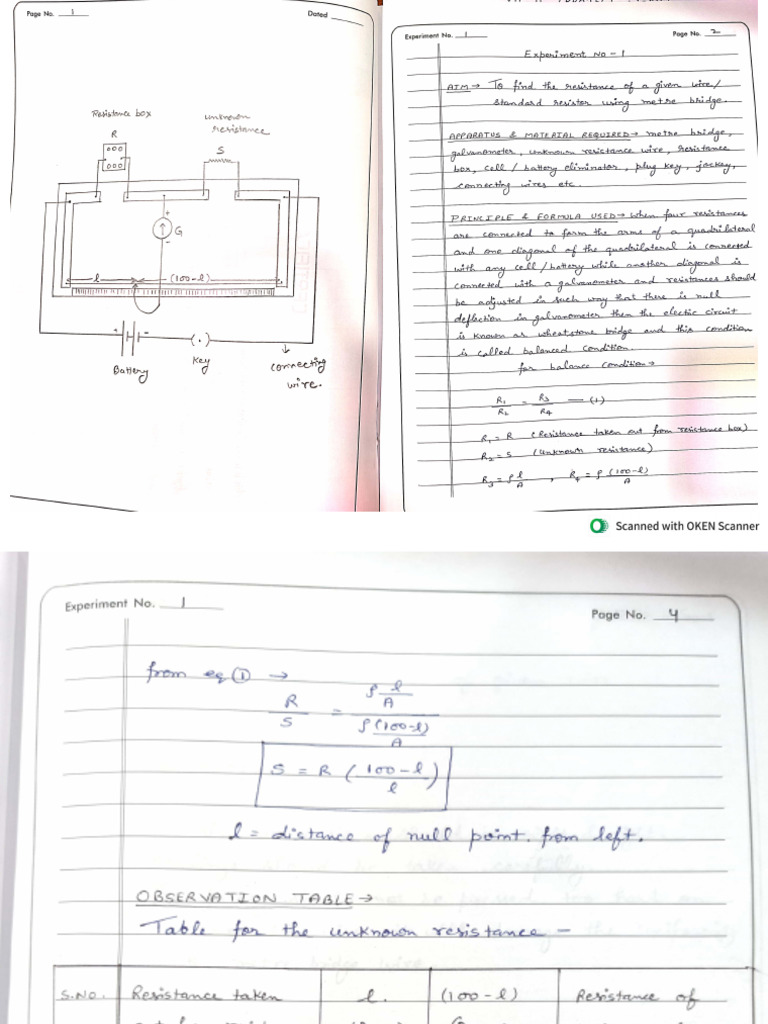 Page No. 1
Dated
Resistance box
R
unknown
resistance
S
+
G
-
l
(100-l)
+
-
Battery
(.)
Key
connecting
wire.
Experiment No. 1
Page No. 2
Experiment No - 1
AIM → To find the resistance of a given wire/
standard resistor using metre bridge.
APPARATUS & MATERIAL REQUIRED → metre bridge,
galvanometer, unknown resistance wire, resistance
box, cell / battery eliminator, plug key, jockey,
connecting wires etc.
PRINCIPLE & FORMULA USED → when four resistances
are connected to form the arms of a quadrilateral
and one diagonal of the quadrilateral is connected
with any cell / battery while another diagonal is
connected with a galvanometer and resistances should
be adjusted in such way that there is null
deflection in galvanometer then the electic circuit
is known as wheatstone bridge and this condition
is called balanced condition.
for balance condition →
R₁/R₂ = R₃/R₄ — (1)
R₁ = R (Resistance taken out from resistance box)
R₂ = S (unknown resistance)
R₃ = ρ l/A , R₄ = ρ (100-l)/A
Scanned with OKEN Scanner
Experiment No. 1
Page No. 4
from eq ① →
R/S = ρ l/A / ρ (100-l)/A
S = R (100-l/l)
l = distance of null point. from left.
OBSERVATION TABLE →
Table for the unknown resistance -
S.NO. Resistance taken l. (100-l) Resistance of